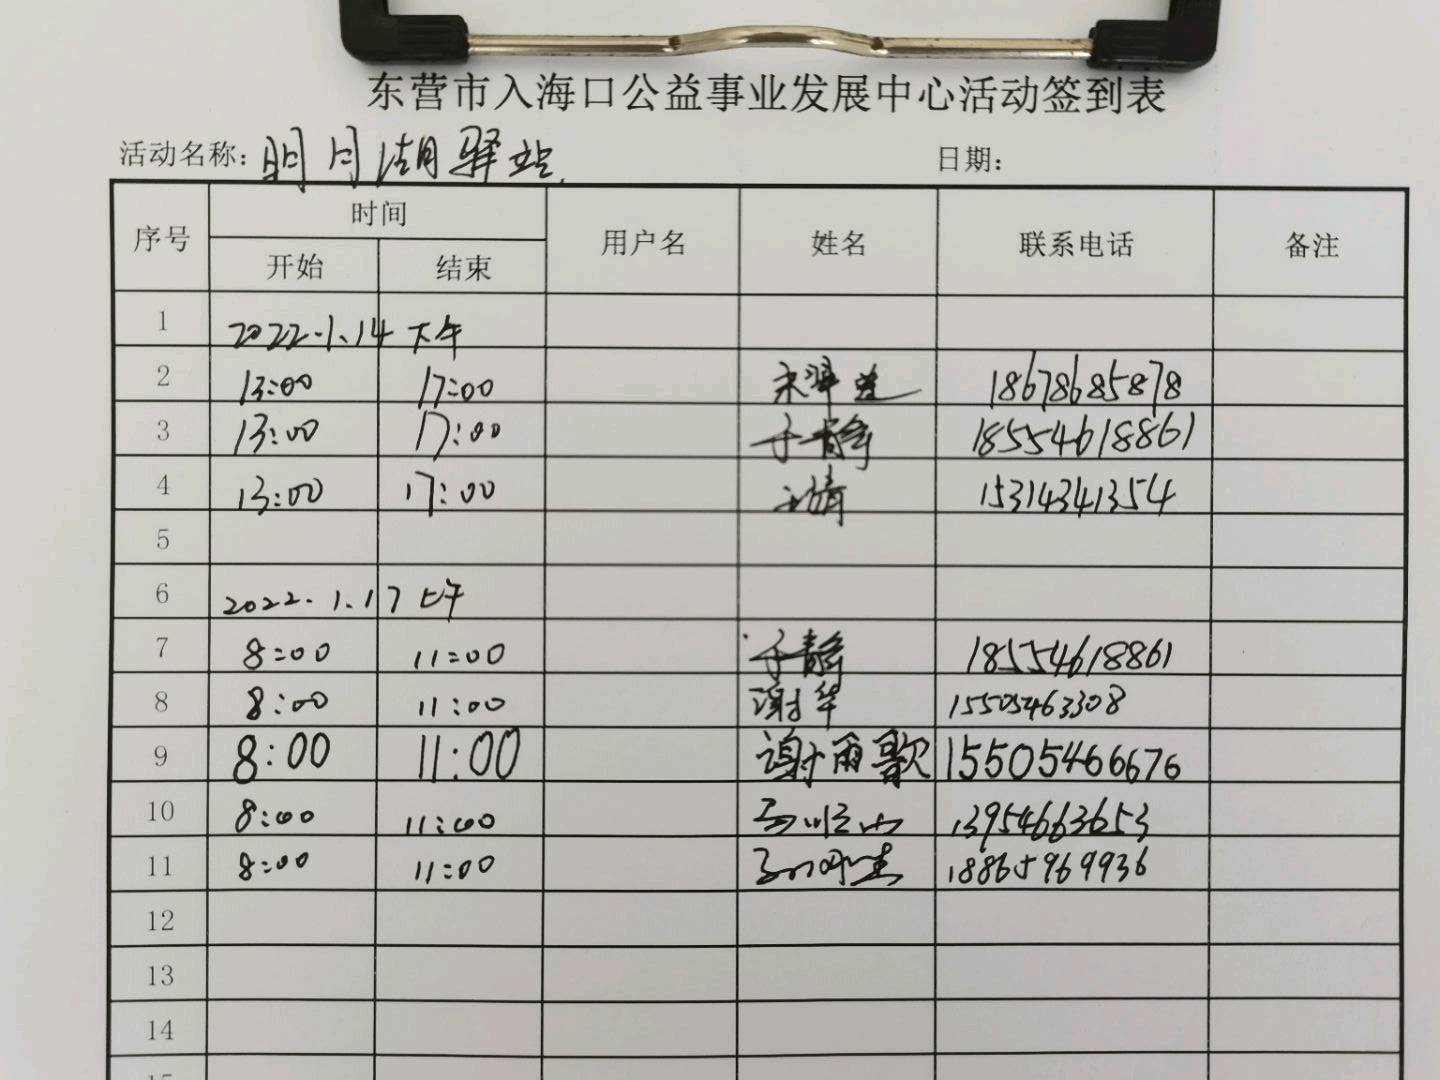 东营市入海口公益事业发展中心活动签到表
活动名称：明月湖驿站 日期：
序号 时间 用户名 姓名 联系电话 备注
开始 结束
1 2022.1.14 下午
2 13:00 17:00 18678685878
3 13:00 17:00 于静 18554618861
4 13:00 17:00 15314341354
5
6 2022.1.17 上午
7 8:00 11:00 于静 18554618861
8 8:00 11:00 谢华 15505463308
9 8:00 11:00 谢雨歌 15505466676
10 8:00 11:00 13954663653
11 8:00 11:00 18865969936
12
13
14
15